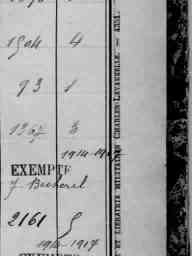 1504 4
93 1
1367 3
1914-1917
EXEMPTÉ
J. Becherel
2161 5
1914-1917
ET LIBRAIRIE MILITAIRES CHARLES-LAVAUZELLE. — 4351.